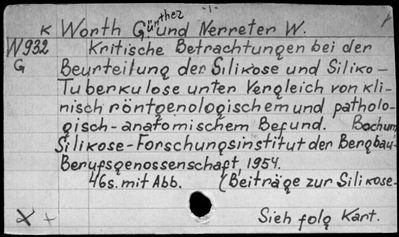 K Worth Günther und Nerreter W.
W932 Kritische Betrachtungen bei der
G Beurteilung der Silikose und Siliko-
Tuberkulose unter Vergleich von kli-
nisch röntgenologischem und patholo-
gisch-anatomischem Befund. Bochum,
Silikose-Forschungsinstitut der Bergbau-
Berufsgenossenschaft, 1954.
46s. mit Abb. (Beiträge zur Silikose-
Sieh folg Kart.